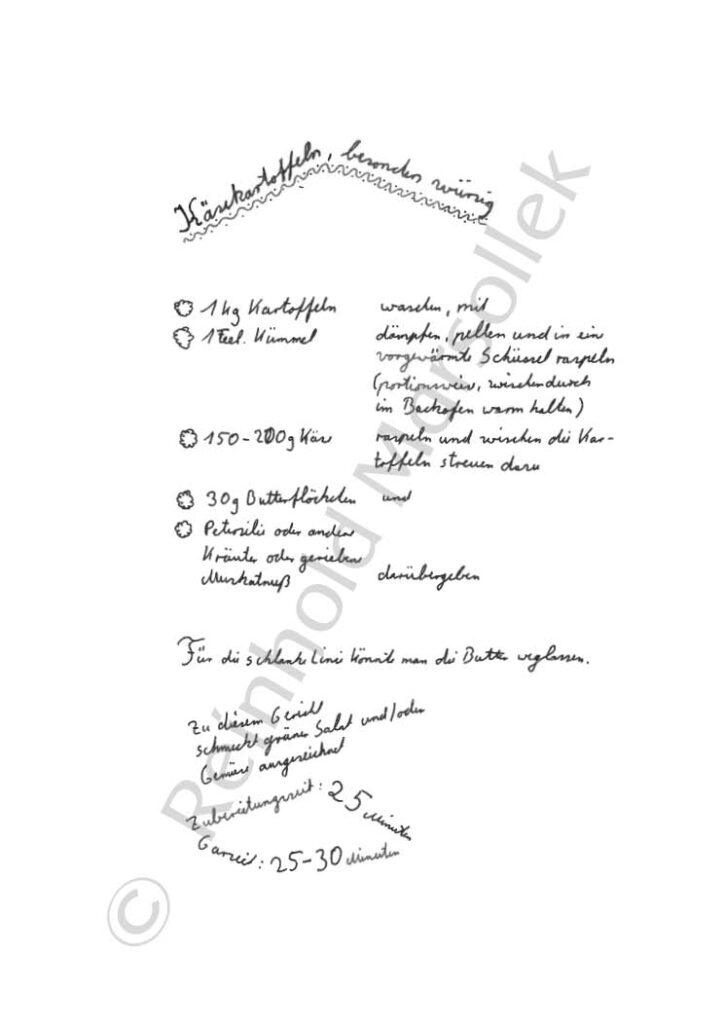 Käsekartoffeln, besonders würzig
1 kg Kartoffeln waschen, mit
1 Teel. Kümmel dämpfen, pellen und in ein
vorgewärmte Schüssel raspeln
(portionsweis, zwischendurch
im Backofen warm halten)
150-200g Käse raspeln und zwischen die Kar-
toffeln streuen dazu
30g Butterflöckchen und
Petersilie oder andere
Kräuter oder geriebene
Muskatnuß darübergeben
Für die schlanke Linie könnte man die Butter weglassen.
Zu diesem Gericht
schmeckt grüner Salat und/oder
Gemüse ausgezeichnet
Zubereitungszeit: 25 Minuten
Garzeit: 25-30 Minuten
Reinhold Marsollek
©